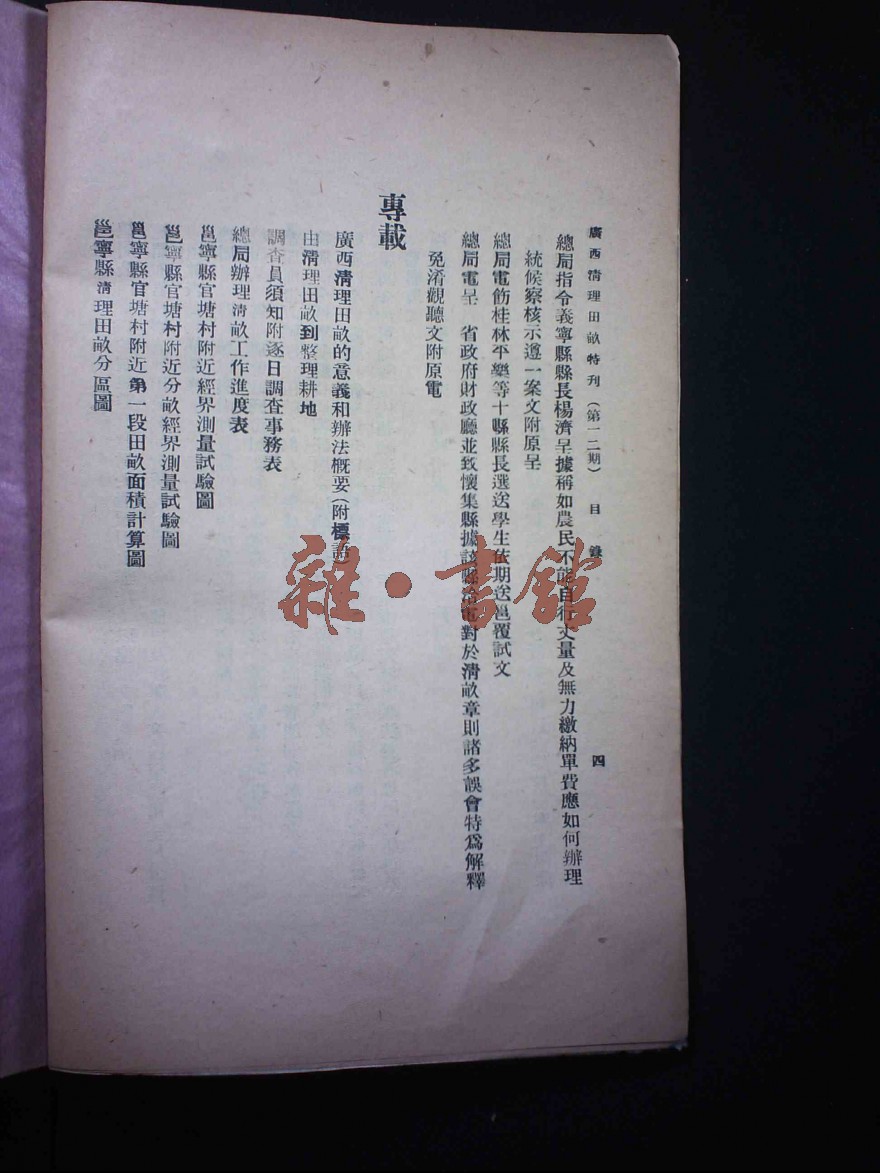 廣西清理田畝特刊（第一二期）　目錄　四
總局指令義寧縣縣長楊濟呈據稱如農民不能自行丈量及無力繳納單費應如何辦理
統候察核示遵一案文附原呈
總局電飭桂林平樂等十縣縣長選送學生依期送邕覆試文
總局電呈　省政府財政廳並致懷集縣據該縣冶電對於清畝章則諸多誤會特爲解釋
免淆觀聽文附原電
專載
廣西清理田畝的意義和辦法概要（附標語）
由清理田畝到整理耕地
調查員須知附逐日調查事務表
總局辦理清畝工作進度表
邕寧縣官塘村附近經界測量試驗圖
邕寧縣官塘村附近分畝經界測量試驗圖
邕寧縣官塘村附近第一段田畝面積計算圖
邕寧縣清理田畝分區圖
雜·書館